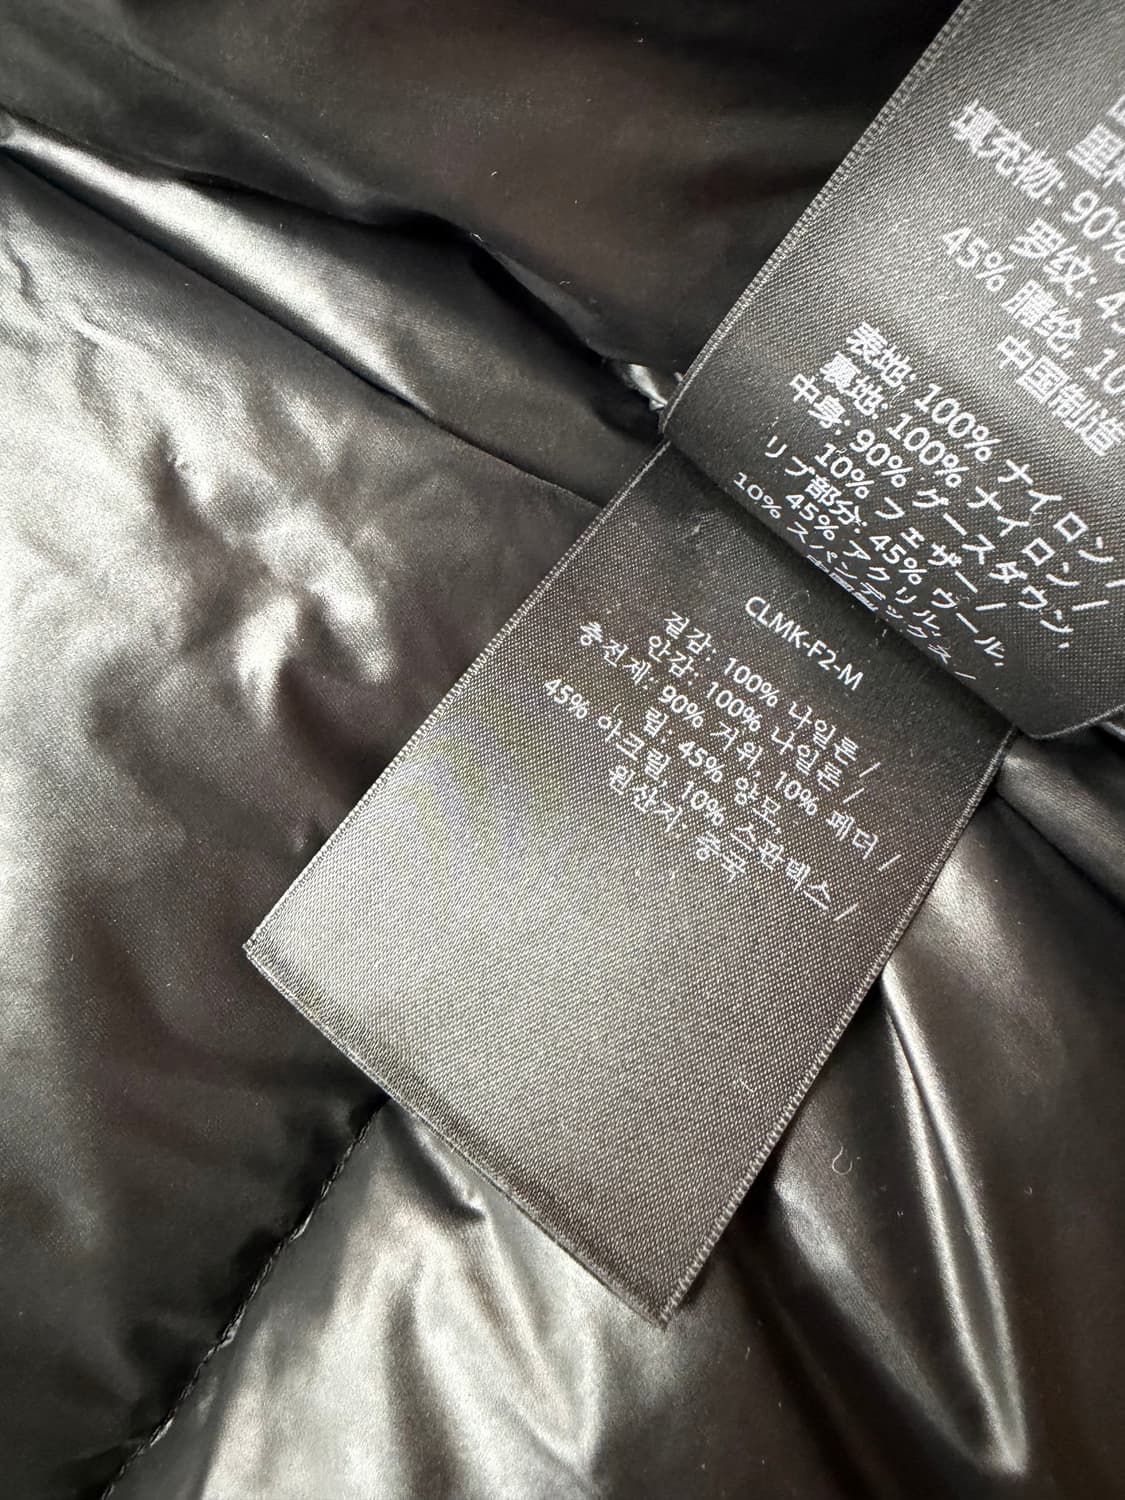 填充物: 90%
罗纹: 45
45% 腈纶, 10
中国制造
表地: 100% ナイロン /
裏地: 100% ナイロン /
中身: 90% グースダウン,
10% フェザー /
リブ部分: 45% ウール,
45% アクリル,
10% スパンデックス /
CLMK-F2-M
겉감: 100% 나일론 /
안감: 100% 나일론 /
충전제: 90% 거위, 10% 페더 /
립: 45% 양모,
45% 아크릴, 10% 스판덱스 /
원산지: 중국